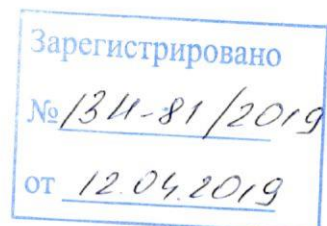 Зарегистрировано
№ 134-81/2019
от 12.04.2019